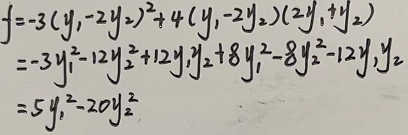 f=-3(y₁-2y₂)²+4(y₁-2y₂)(2y₁+y₂)
=-3y₁²-12y₂²+12y₁y₂+8y₁²-8y₂²-12y₁y₂
=5y₁²-20y₂²